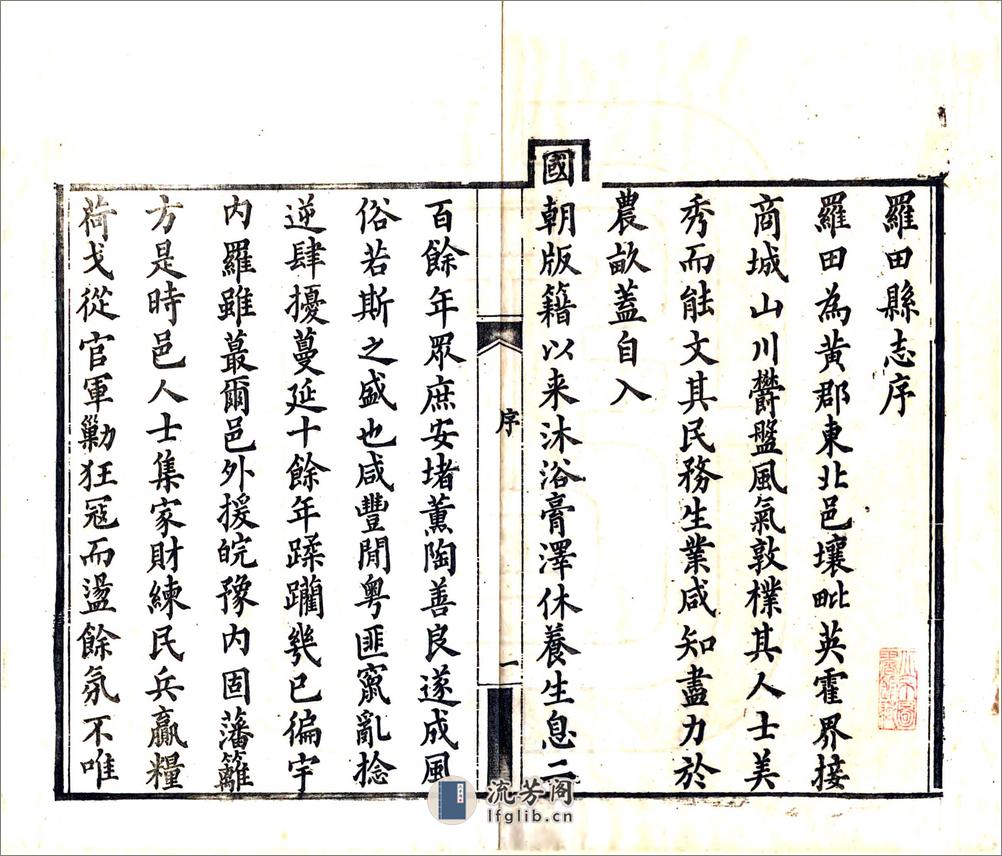 羅田縣志序
羅田為黃郡東北邑壤毗英霍界接
商城山川欝盤風氣敦樸其人士美
秀而能文其民務生業咸知盡力於
農畝蓋自入
國朝版籍以来沐浴膏澤休養生息二
序
一
百餘年眾庶安堵薰陶善良遂成風
俗若斯之盛也咸豐閒粤匪竄亂捻
逆肆擾蔓延十餘年蹂躪幾已徧宇
内羅雖蕞爾邑外援皖豫内固藩籬
方是時邑人士集家財練民兵贏糧
荷戈從官軍勦狂冦而盪餘氛不唯
流芳阁
lfglib.cn